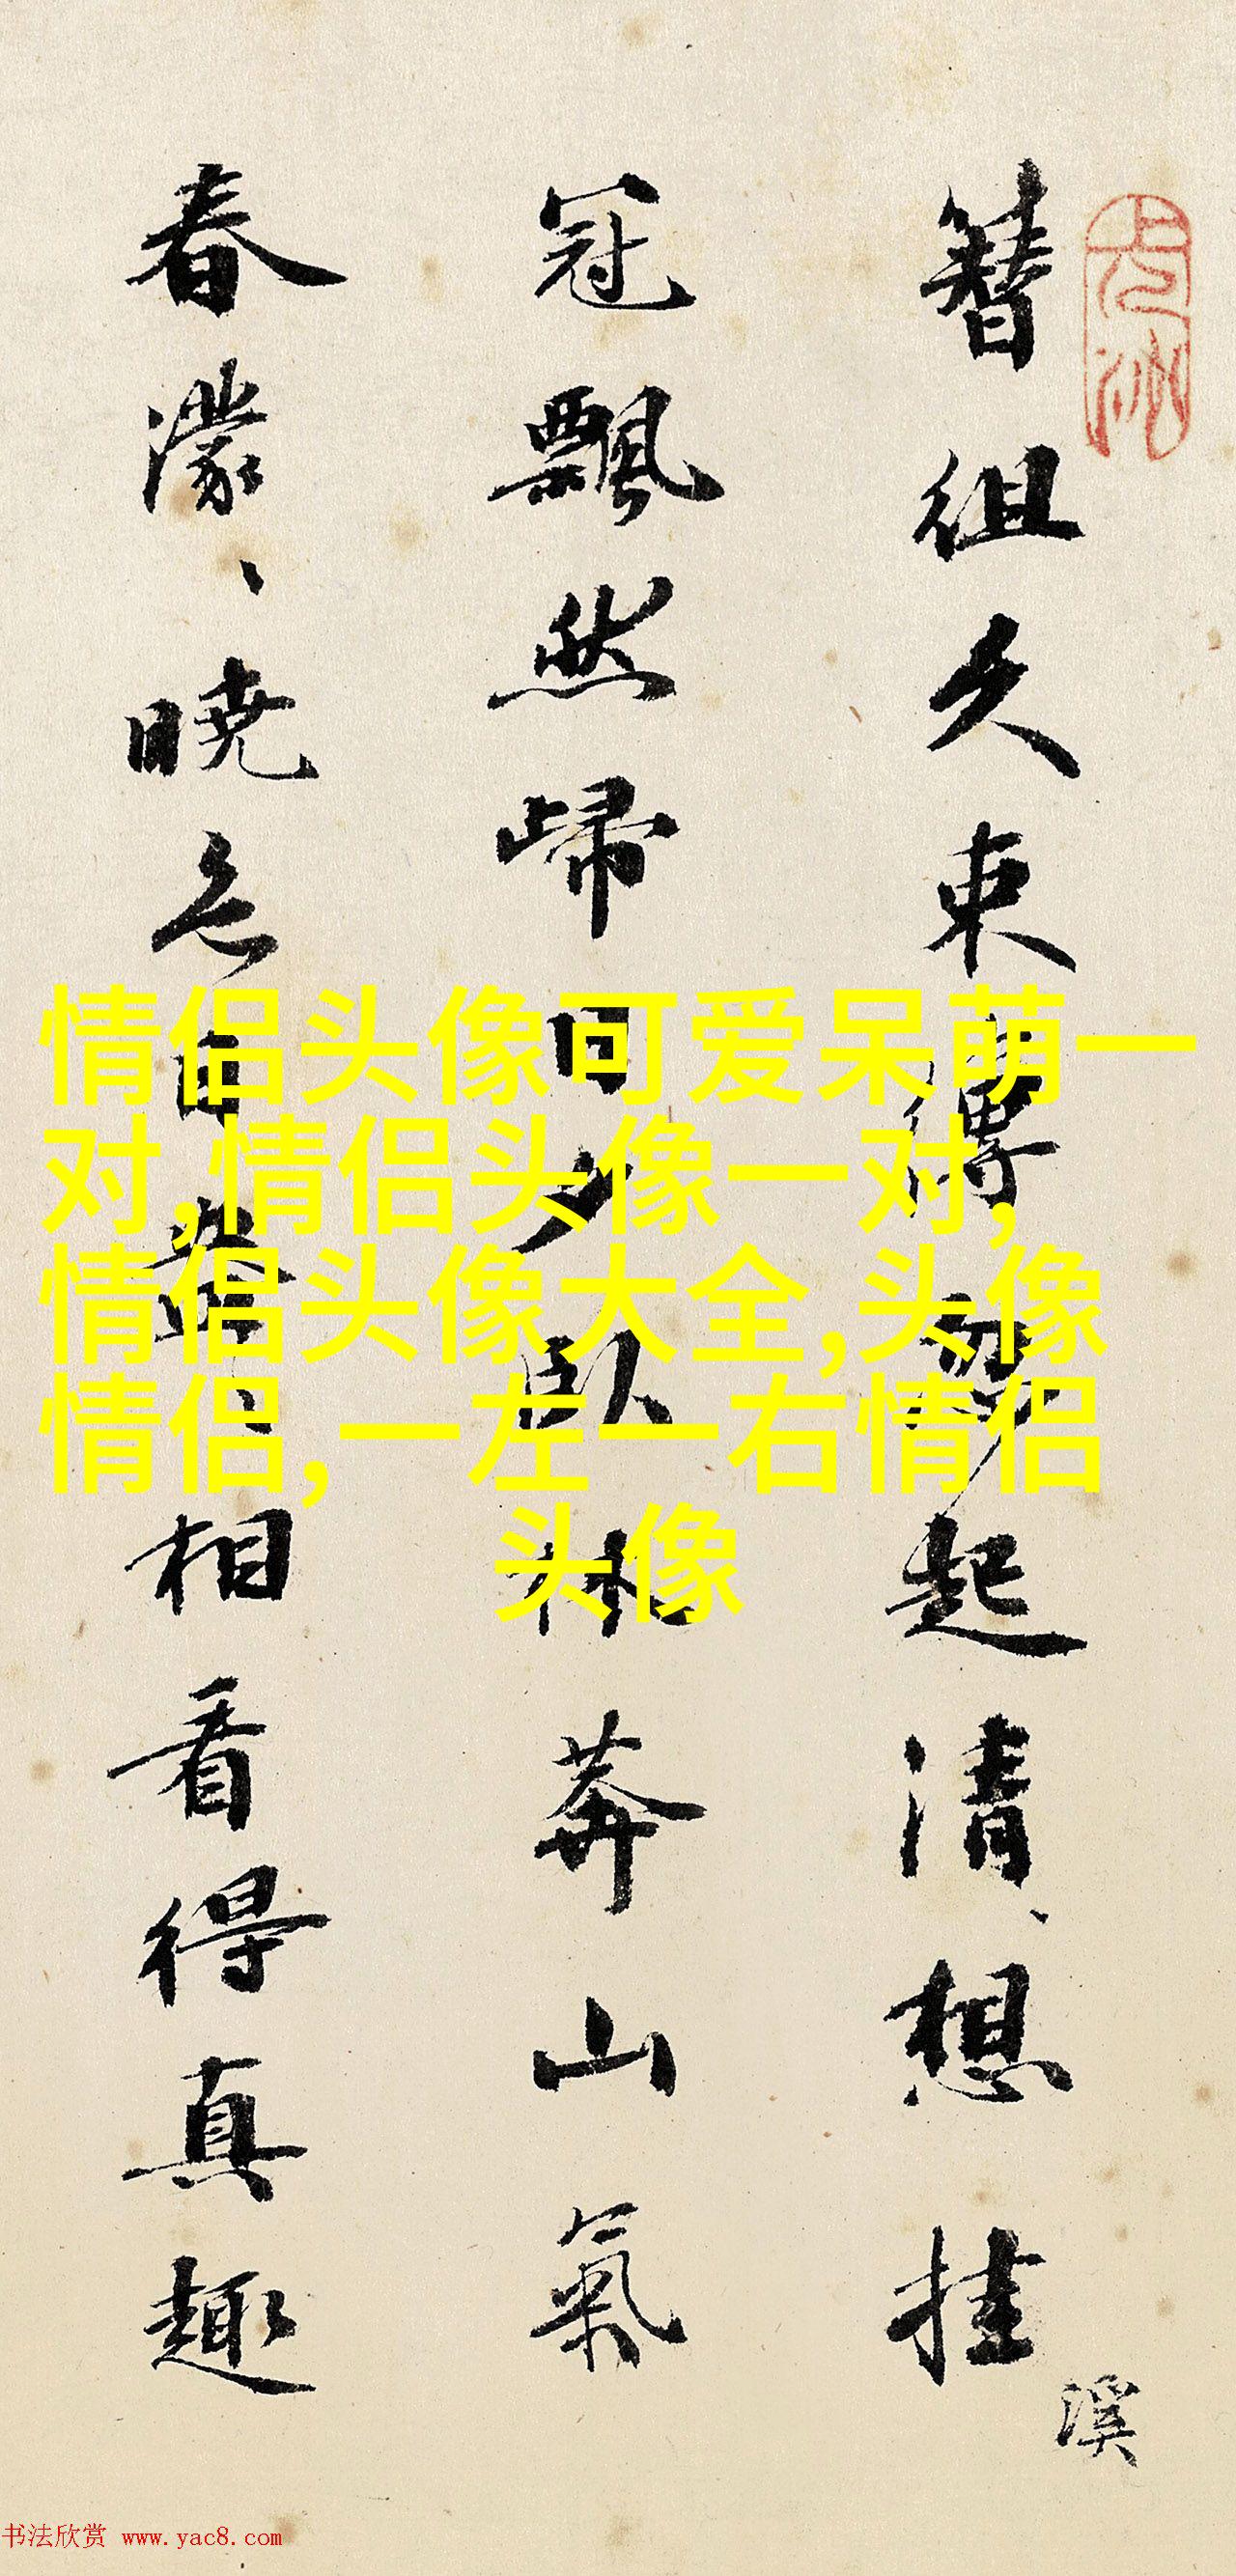 簪组久束縛忽起清想挂
冠飄然歸日夕臥林莽山氣
春濛、晓色自蒼、相看得真趣
溪
情侣头像可爱呆萌一
对,情侣头像一对,
情侣头像大全,头像
情侣,一左一右情侣
头像
书法欣赏 www.yac8.com